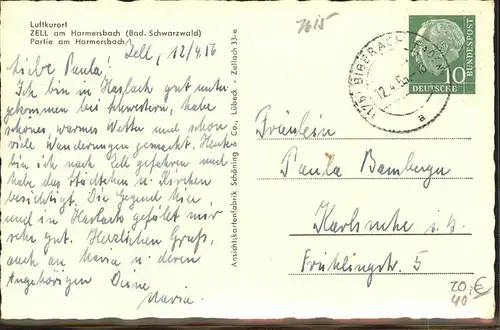 Luftkurort
ZELL am Harmersbach (Bad. Schwarzwald)
Partie am Harmersbach
Zell, 12/4.56
Liebe Paula!
Ich bin in Haslach gut unter-
gekommen bei Schwestern, habe
schönes, warmes Wetter und schon
viele Wanderungen gemacht. Heute
bin ich nach Zell gefahren und
habe das Städtchen u. Kirchen
besichtigt. Die Gegend hier
und in Haslach gefällt mir
sehr gut. Herzlichen Gruß,
auch an Maria u. deren
Angehörigen Deine
Maria.
Ansichtskartenfabrik Schöning & Co., Lübeck - Zellach 33-e
7615
(17b) BIBERACH
12.4.56
a
10
DEUTSCHE BUNDESPOST
Fräulein
Paula Bamberger
Karlsruhe i. B.
Frühlingstr. 5
20,€
40